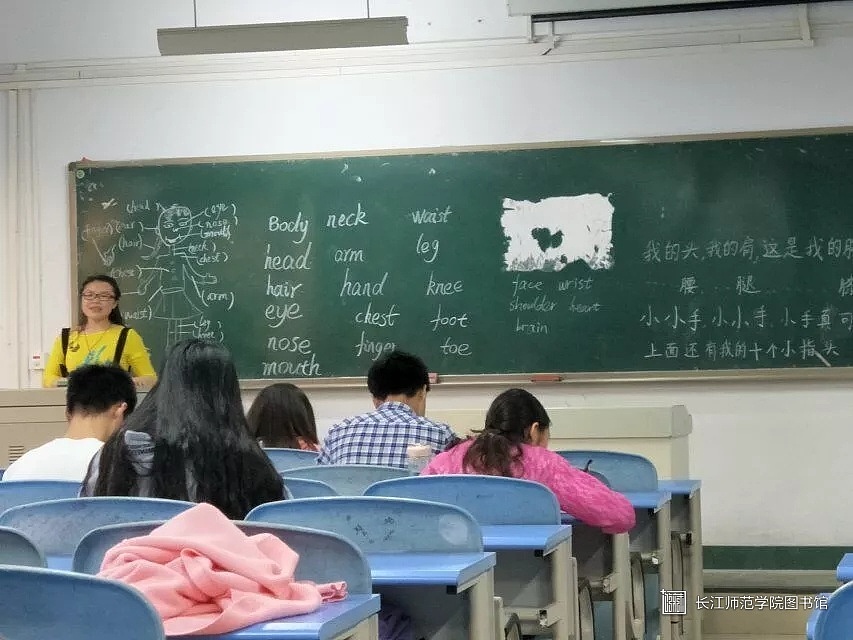 (head)
(eye)
(ear)
(nose)
(finger)
(mouth)
(hair)
(neck)
(chest)
(chest)
(arm)
(waist)
(leg)
Body neck waist
head arm leg
hair hand knee
eye chest foot
nose finger toe
mouth
face wrist
shoulder heart
brain
我的头,我的肩,这是我的
腰 腿 膝
小小手,小小手,小手真可
上面还有我的十个小指头
长江师范学院图书馆